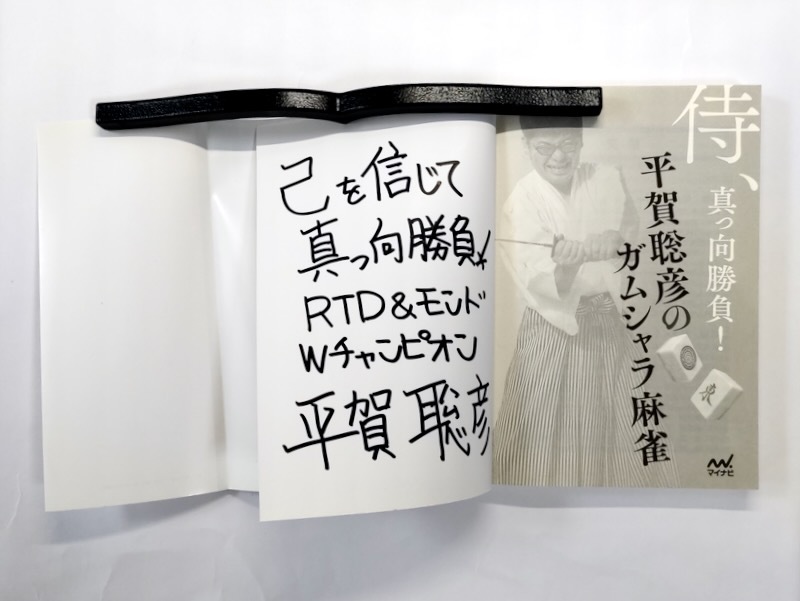 己を信じて
真っ向勝負!
RTD&モンド
Wチャンピオン
平賀 聡彦
侍、
真っ向勝負!
平賀聡彦の
ガムシャラ麻雀
マイナビ